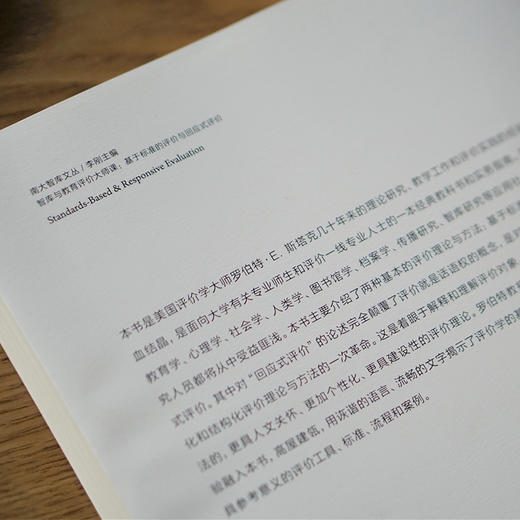 南大智库文丛 / 李刚主编
智库与教育评价大师课：基于标准的评价与回应式评价
Standards-Based & Responsive Evaluation
本书是美国评价学大师罗伯特·E. 斯塔克几十年来的理论研究、教学工作和评价实践的
血结晶，是面向大学有关专业师生和评价一线专业人士的一本经典教科书和实务
教育学、心理学、社会学、人类学、图书馆学、档案学、传播研究、智库研究等应用
究人员都将从中受益匪浅。本书主要介绍了两种基本的评价理论与方法：基于标
式评价。其中对“回应式评价”的论述完全颠覆了评价就是话语权的概念，是对
化和结构化评价理论与方法的一次革命。这是着眼于解释和理解评价对象、
法的，更具人文关怀、更加个性化、更具建设性的评价理论。罗伯特教
验融入本书，高屋建瓴，用诙谐的语言、流畅的文字揭示了评价学的基
具参考意义的评价工具、标准、流程和案例。